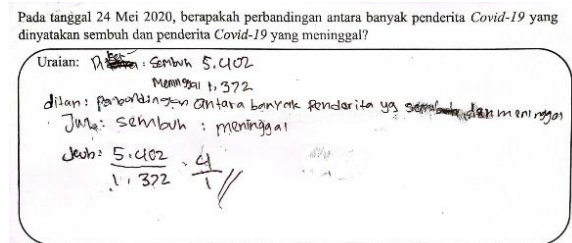 Pada tanggal 24 Mei 2020, berapakah perbandingan antara banyak penderita Covid-19 yang
dinyatakan sembuh dan penderita Covid-19 yang meninggal?
Uraian: Dket : Sembuh 5.402
Meninggal 1,372
ditan : perbandingan antara banyak penderita yg sembuh dan meninggal
Jwb : sembuh : meninggal
Jwb : 5.402 4
1.372 1